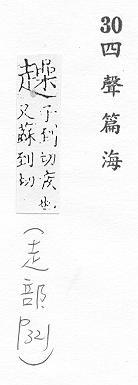 30四聲篇海
趮子到切疾也
又蘇到切
(走部P321)